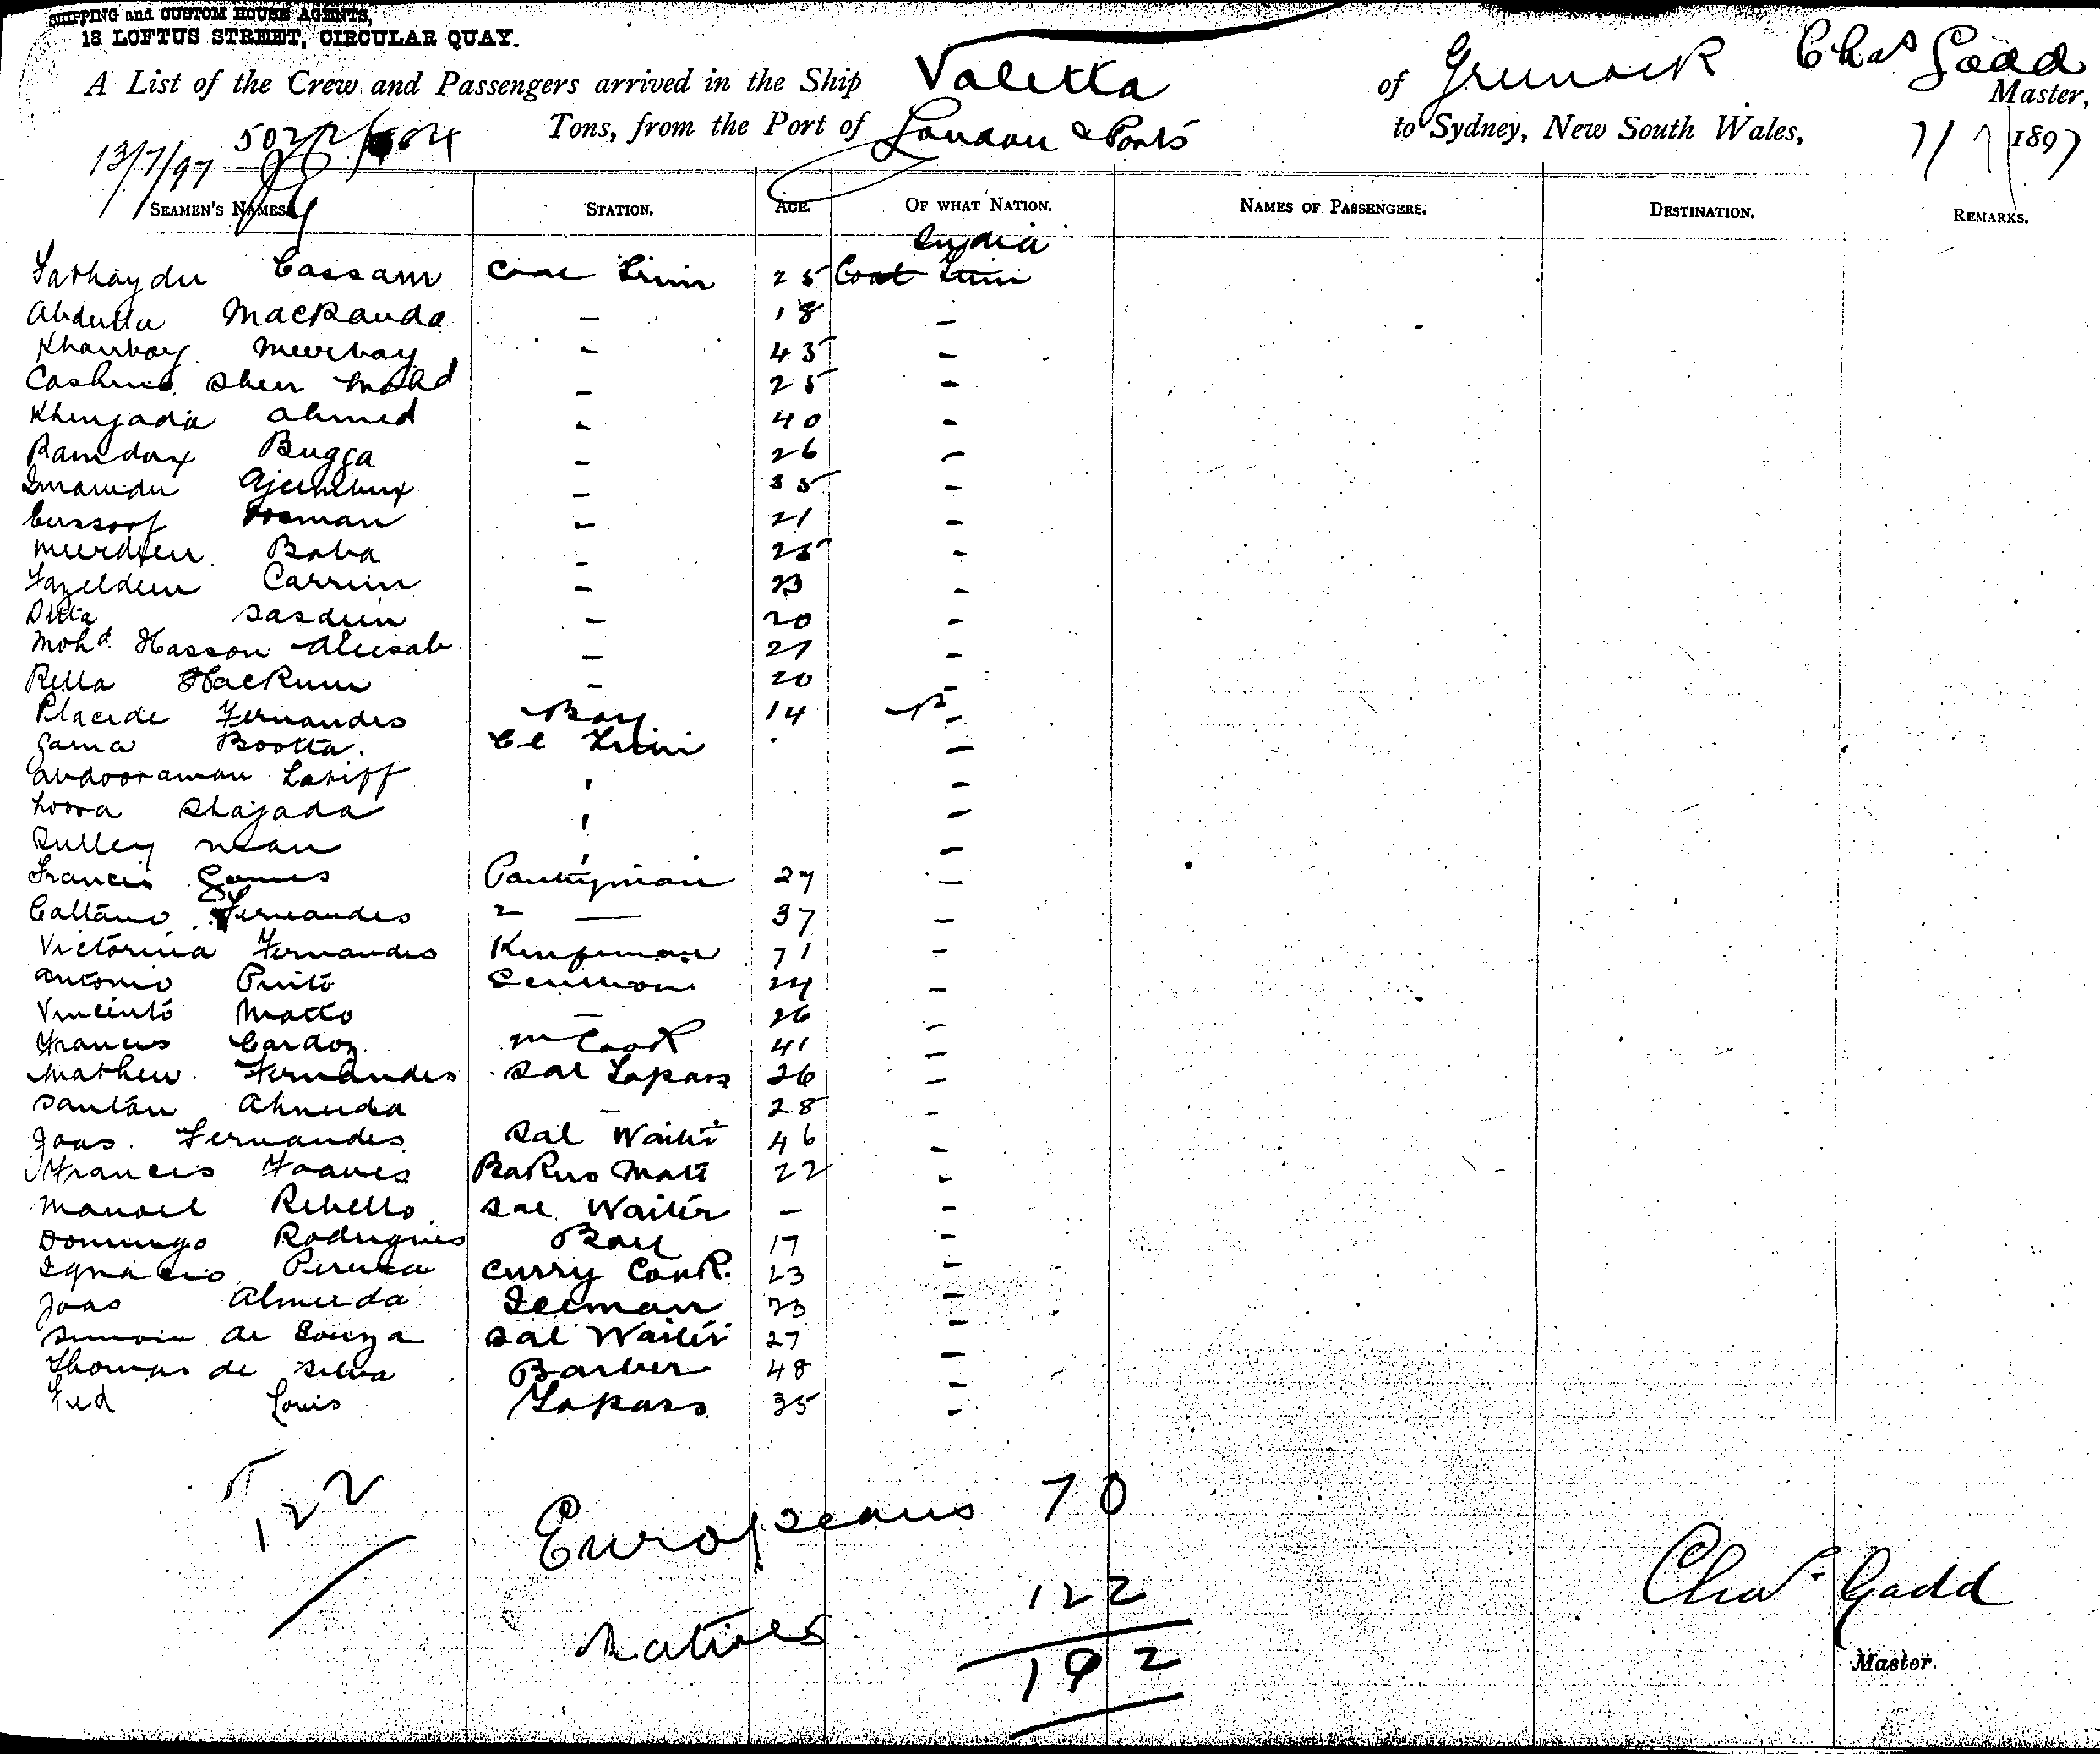 SHIPPING and CUSTOM HOUSE AGENTS,
18 LOFTUS STREET, CIRCULAR QUAY.
A List of the Crew and Passengers arrived in the Ship Valetta of Greenock Chas Gadd Master,
Tons, from the Port of London & Ports to Sydney, New South Wales, 7/7/1897
13/7/97
SEAMEN'S NAMES. STATION. AGE. OF WHAT NATION. NAMES OF PASSENGERS. DESTINATION. REMARKS.
India
Cassam Coal Trim 25 Coal Trim
Abdulla Mackauda - 18 -
Khanbay Meerbay - 43 -
Sher Mohd - 25 -
Khenjada Ahmed - 40 -
Ramdox Bugga - 26 -
- 35 -
Cussoof Tosman - 21 -
Meerdeen Baba - 25 -
Fazeldeen Carrim - 23 -
Ditta Sasdeen - 20 -
Mohd Hasson Aleesab - 27 -
Rella Hackum - 20 -
Placide Fernandes Boy 14 -
Jama Bootta. Cl Trim -
Abdooraman Latiff -
Noora Shajada -
Sulley Nean -
Francis Gomes Pantryman 27 -
Caltano Fernandes " — 37 -
Victorina Fernandes 71 -
Antonio Pinto Scullion 24 -
Vincento Matto - 26 -
Francis Cardoz m Cook 41 -
Mathew Fernandes Sal Topass 26 -
Santan Almeida - 28 -
Joas. Fernandes Sal Waiter 46 -
Francis Bakers Mate 22 -
Manoel Rebello Sal Waiter - -
Domingo Rodrigues 17 -
Ignacio Pereira Curry Cook. 23 -
Joao Almeida Iceman 23 -
Simoin de Souza Sal Waiter 27 -
Thomas de Silva Barber 48 -
Fred Louis Topass 35 -
122
Europeans 70
Natives 122
192
Chas. Gadd
Master.